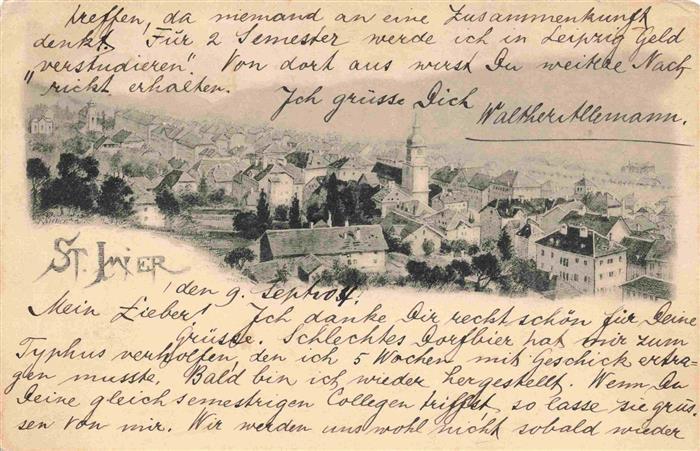 ST. IMIER
den 9. Sept. 04.
Mein Lieber! Ich danke Dir recht schön für Deine
Grüsse. Schlechtes Dorfbier hat mir zum
Typhus verholfen, den ich 5 Wochen mit Geschick ertra-
gen musste. Bald bin ich wieder hergestellt. Wenn Du
Deine gleichsemestrigen Collegen triffst, so lasse sie grüs-
sen von mir. Wir werden uns wohl nicht sobald wieder
treffen, da niemand an eine Zusammenkunft
denkt. Für 2 Semester werde ich in Leipzig Geld
„verstudieren". Von dort aus wirst Du weitere Nach-
richt erhalten.
Ich grüsse Dich
Walther Allemann.